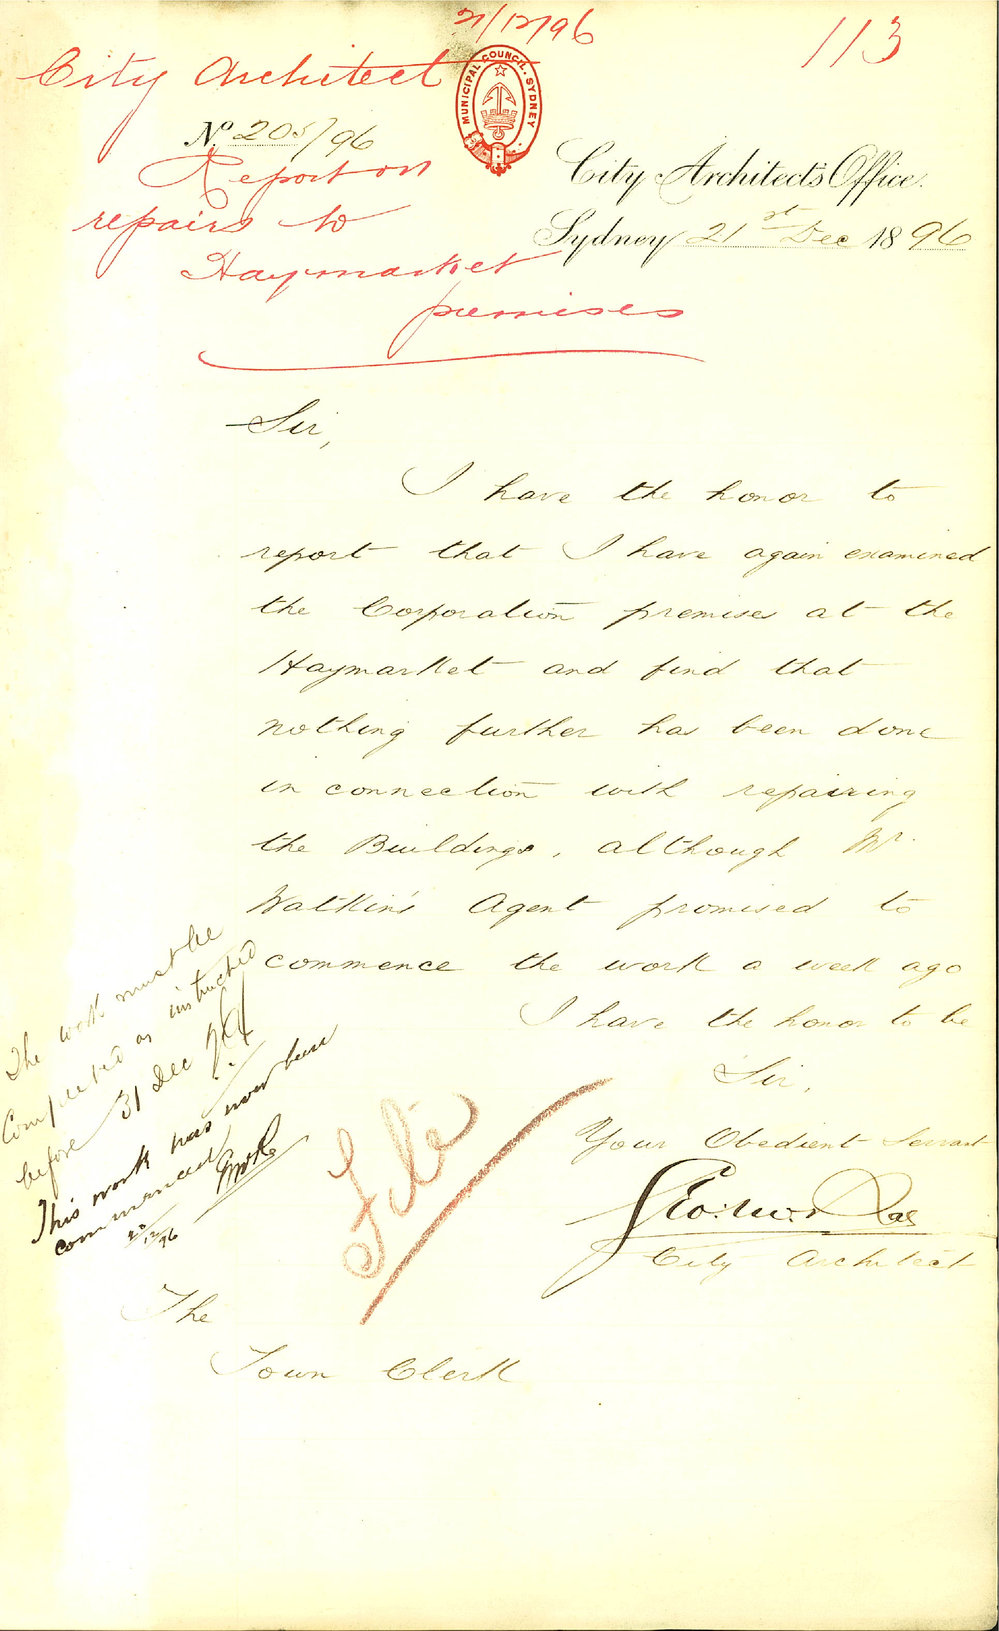 21/12/96
113
City Architect
MUNICIPAL COUNCIL. SYDNEY
No. 205/96
City Architect's Office.
Report on
repairs to
Sydney 21st Dec 1896
Haymarket
premises
Sir,
I have the honor to
report that I have again examined
the Corporation premises at the
Haymarket and find that
nothing further has been done
in connection with repairing
the Buildings, although Mr.
Watkin's Agent promised to
commence the work a week ago
I have the honor to be
Sir,
Your Obedient Servant
Geo. McRae
City Architect
The work must be
completed as instructed
before 31 Dec
This work has now been
commenced
GMcR
12/96
File
The
Town Clerk